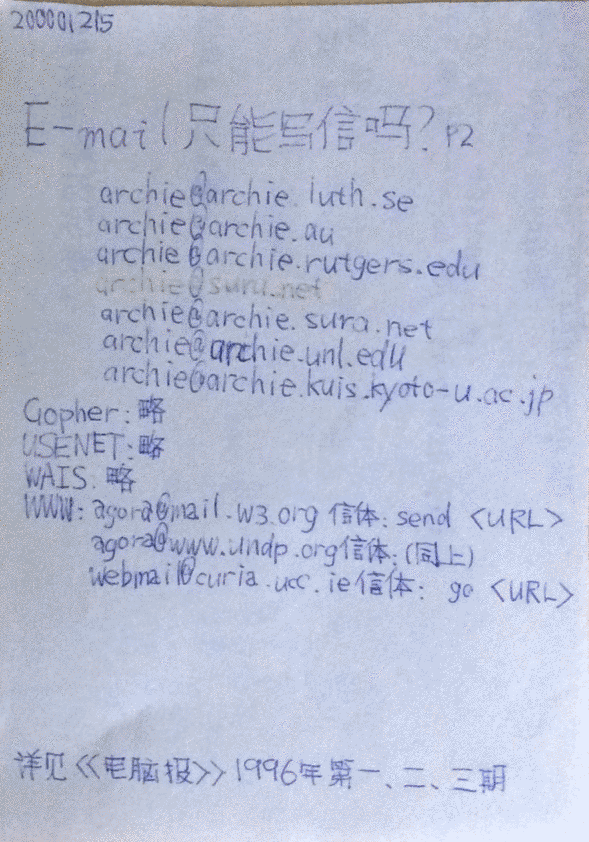 200001215
E-mail只能写信吗? P2
archie@archie.luth.se
archie@archie.au
archie@archie.rutgers.edu
archie@sura.net
archie@archie.sura.net
archie@archie.unl.edu
archie@archie.kuis.kyoto-u.ac.jp
Gopher: 略
USENET: 略
WAIS: 略
WWW: agora@mail.w3.org 信体: send <URL>
agora@www.undp.org信体: (同上)
webmail@curia.ucc.ie信体: go <URL>
详见《电脑报》1996年第一、二、三期